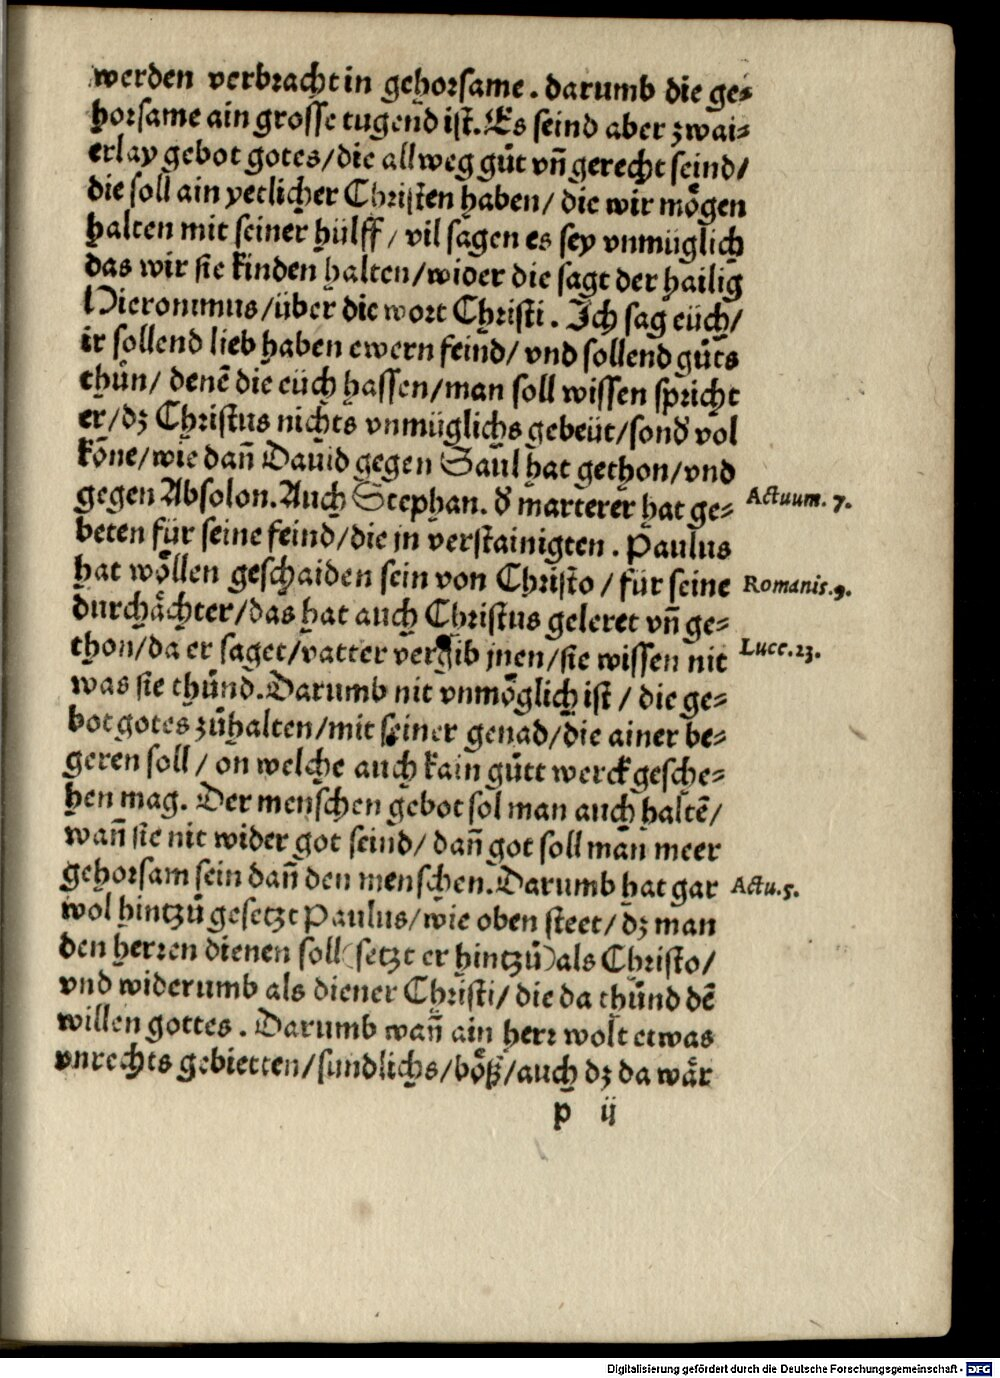 werden verbracht in gehorsame. darumb die ge-
horsame ain grosse tugend ist. Es seind aber zwai-
erlay gebot gotes/die allweg gůt vñ gerecht seind/
die soll ain yetlicher Christen haben/ die wir mögen
halten mit seiner hülff/ vil sagen es sey vnmüglich
das wir sie kinden halten/wider die sagt der hailig
Hieronimus/über die wort Christi. Ich sag eüch/
ir sollend lieb haben ewern feind/ vnd sollend gůts
thůn/ denē die eüch hassen/man soll wissen spricht
er/dz Christus nichts vnmüglichs gebeüt/sonď vol
kōne/wie dañ Dauid gegen Saul hat gethon/vnd
gegen Absolon. Auch Stephan. ď marterer hat ge- Actuum. 7.
beten für seine feind/die jn verstainigten. Paulus
hat wöllen geschaiden sein von Christo/ für seine Romanis. 9.
durchächter/das hat auch Christus geleret vñ ge-
thon/da er saget/vatter vergib jnen/sie wissen nit Luce. 23.
was sie thůnd. Darumb nit vnmöglich ist/ die ge-
bot gotes zůhalten/mit seiner genad/die ainer be-
geren soll/ on welche auch kain gůtt werck gesche-
hen mag. Der menschen gebot sol man auch haltē/
wañ sie nit wider got seind/ dañ got soll man meer
gehorsam sein dañ den menschen. Darumb hat gar Actu. 5.
wol hintzů gesetzt Paulus/wie oben steet/ dz man
den herren dienen soll (setzt er hintzů) als Christo/
vnd widerumb als diener Christi/ die da thůnd dē
willen gottes. Darumb wañ ain herr wolt etwas
vnrechts gebietten/sundlichs/böß/auch dz da wår
p ij
Digitalisierung gefördert durch die Deutsche Forschungsgemeinschaft - DFG